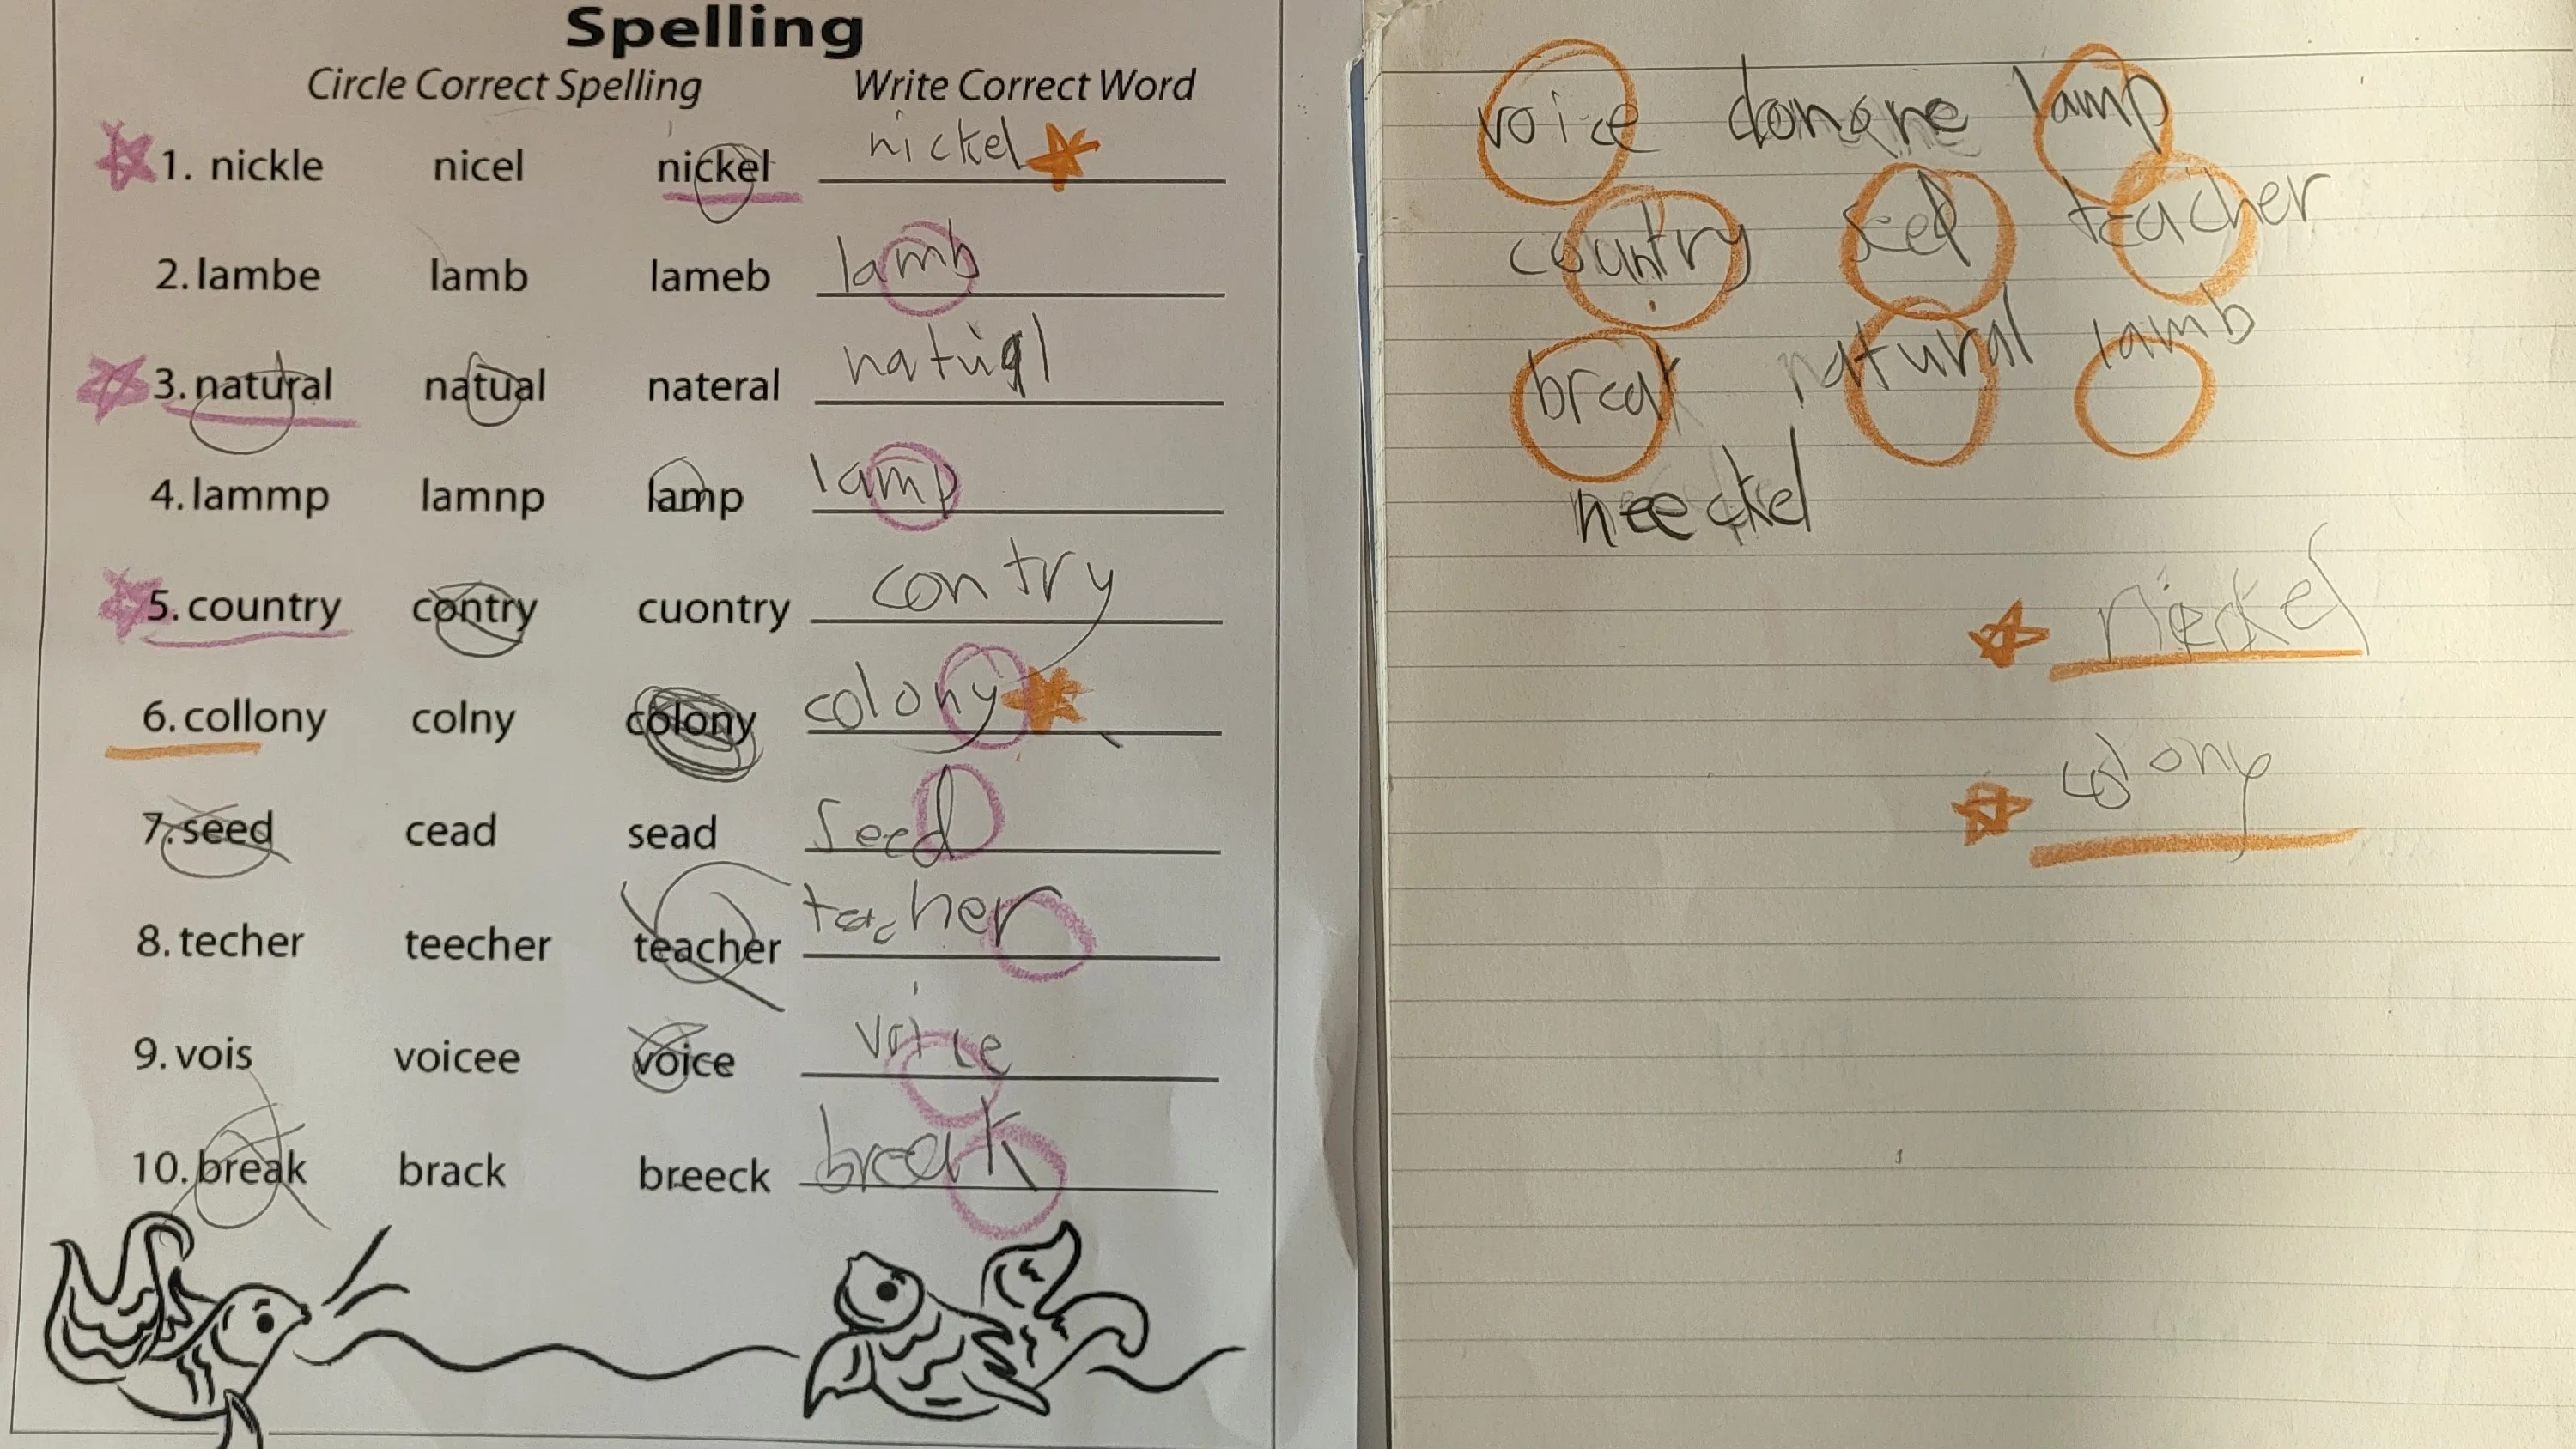 Spelling
Circle Correct Spelling Write Correct Word
1. nickle nicel nickel nickel
2. lambe lamb lameb lamb
3. natural natual nateral
4. lammp lamnp lamp lamp
5. country contry cuontry contry
6. collony colny colony colony
7. seed cead sead seed
8. techer teecher teacher teacher
9. vois voicee voice voice
10. break brack breeck break
voice lamp
country seed teacher
break natural lamb
neeckel
colony